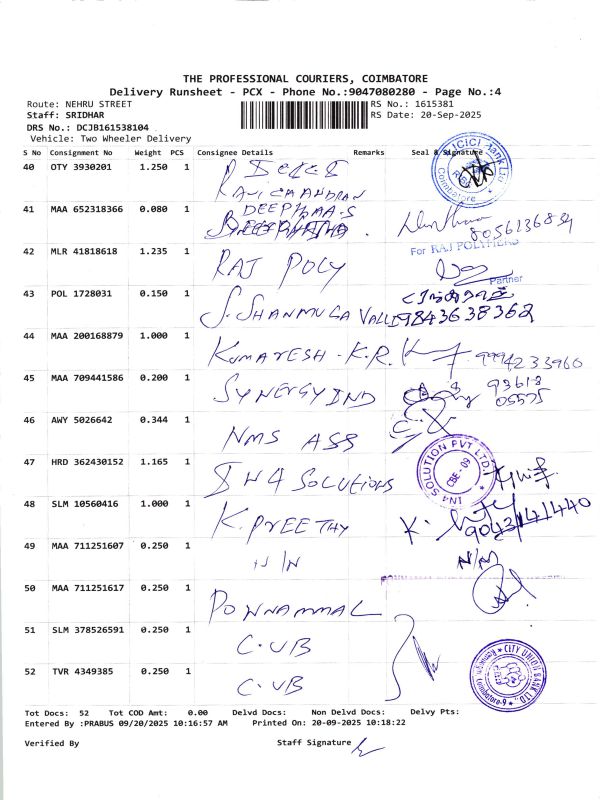 THE PROFESSIONAL COURIERS, COIMBATORE
Delivery Runsheet - PCX - Phone No.:9047080280 - Page No.:4
Route: NEHRU STREET
RS No.: 1615381
Staff: SRIDHAR
RS Date: 20-Sep-2025
DRS No.: DCJB161538104
Vehicle: Two Wheeler Delivery
S No Consignment No Weight PCS Consignee Details Remarks Seal & Signature
40 OTY 3930201 1.250 1
RAVICHANDRAN
ICICI Bank Ltd
Coimbatore
41 MAA 652318366 0.080 1 DEEPIKAA-S
8056136834
For RAJ POLYMERS
42 MLR 41818618 1.235 1 RAJ POLY
Partner
43 POL 1728031 0.150 1 S. SHANMUGA VALLI 9843638362
44 MAA 200168879 1.000 1 KUMARESH - K.R. 9994233960
45 MAA 709441586 0.200 1 SYNERGY IND 93613
05575
46 AWY 5026642 0.344 1 NMS ASS
47 HRD 362430152 1.165 1 IN4 SOLUTIONS
IN4 SOLUTION PVT LTD.
CBE - 09
48 SLM 10560416 1.000 1 K. PREETHY K.
9043141440
49 MAA 711251607 0.250 1 N/N N/N
50 MAA 711251617 0.250 1 PONNAMMAL
51 SLM 378526591 0.250 1 C.UB
52 TVR 4349385 0.250 1 C.UB
CITY UNION BANK LTD.
Coimbatore-9
Tot Docs: 52 Tot COD Amt: 0.00 Delvd Docs: Non Delvd Docs: Delvy Pts:
Entered By :PRABUS 09/20/2025 10:16:57 AM Printed On: 20-09-2025 10:18:22
Verified By Staff Signature